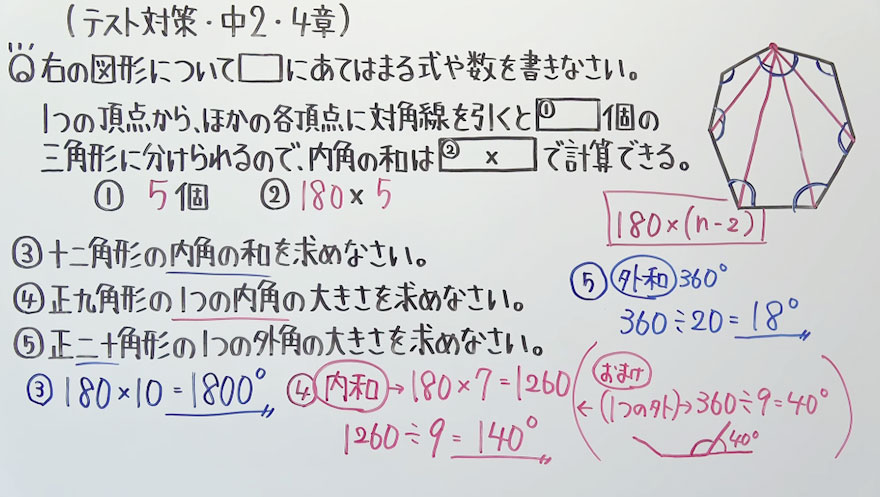 (テスト対策・中2・4章)
Q 右の図形について□にあてはまる式や数を書きなさい。
1つの頂点から、ほかの各頂点に対角線を引くと①個の
三角形に分けられるので、内角の和は② × で計算できる。
① 5個 ② 180×5
180×(n-2)
③十二角形の内角の和を求めなさい。
④正九角形の1つの内角の大きさを求めなさい。
⑤正二十角形の1つの外角の大きさを求めなさい。
③ 180×10=1800°
④ 内和→180×7=1260
1260÷9=140°
⑤ 外和 360°
360÷20=18°
おまけ
←(1つの外)→360÷9=40°
40°